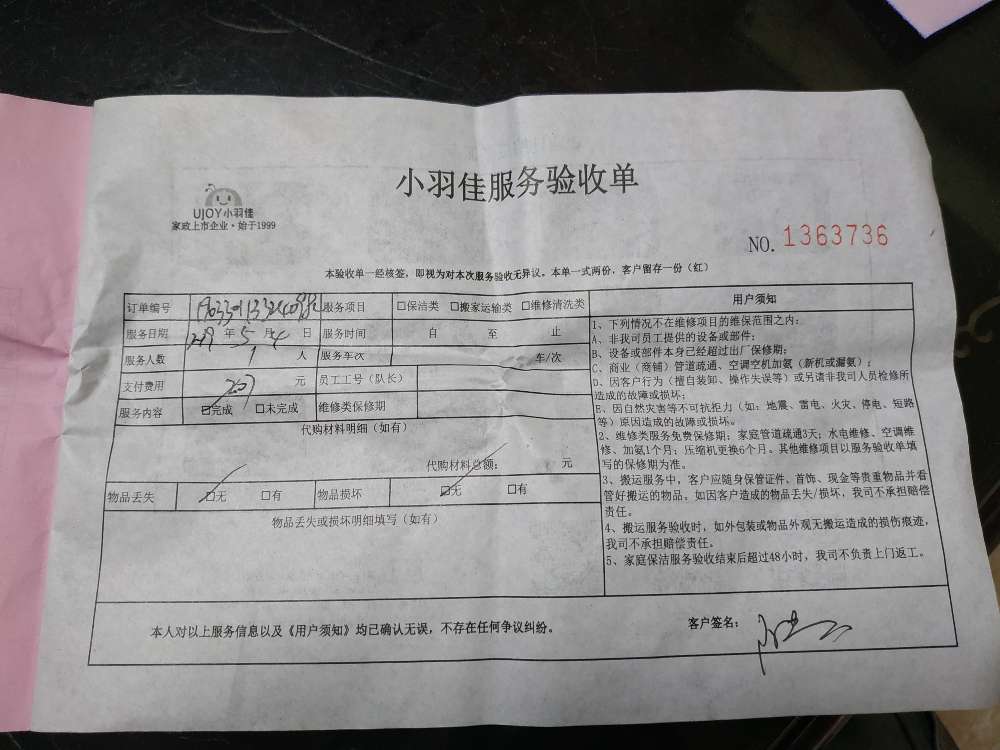 小羽佳服务验收单
UJOY小羽佳
家政上市企业·始于1999
NO. 1363736
本验收单一经核签，即视为对本次服务验收无异议。本单一式两份，客户留存一份（红）
订单编号 服务项目 □保洁类 □搬家运输类 □维修清洗类
服务日期 年 5 月 14 日 服务时间 自 至 止
服务人数 1 人 服务车次 车/次
支付费用 元 员工工号（队长）
服务内容 ☑完成 □未完成 维修类保修期
代购材料明细（如有）
代购材料总额： 元
物品丢失 ☑无 □有 物品损坏 ☑无 □有
物品丢失或损坏明细填写（如有）
用户须知
1、下列情况不在维修项目的维保范围之内：
A、非我司员工提供的设备或部件；
B、设备或部件本身已经超过出厂保修期；
C、商业（商铺）管道疏通、空调空机加氨（新机或漏氨）；
D、因客户行为（擅自装卸、操作失误等）或另请非我司人员检修所
造成的故障或损坏；
E、因自然灾害等不可抗拒力（如：地震、雷电、火灾、停电、短路
等）原因造成的故障或损坏。
2、维修类服务免费保修期：家庭管道疏通3天；水电维修、空调维
修、加氨1个月；压缩机更换6个月。其他维修项目以服务验收单填
写的保修期为准。
3、搬运服务中，客户应随身保管证件、首饰、现金等贵重物品并看
管好搬运的物品。如因客户造成的物品丢失/损坏，我司不承担赔偿
责任。
4、搬运服务验收时，如外包装或物品外观无搬运造成的损伤痕迹，
我司不承担赔偿责任。
5、家庭保洁服务验收结束后超过48小时，我司不负责上门返工。
本人对以上服务信息以及《用户须知》均已确认无误，不存在任何争议纠纷。
客户签名：